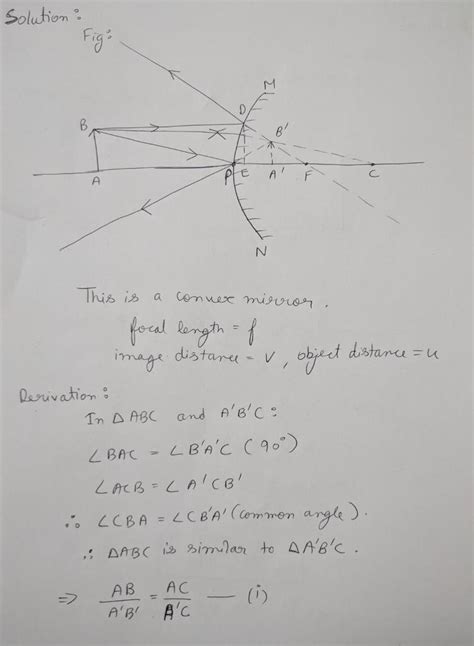 Solution:
Fig:
M
D
B
B'
A
P
E
A'
F
C
N
This is a convex mirror.
focal length = f
image distance = v, object distance = u
Derivation:
In △ABC and A'B'C:
∠BAC = ∠B'A'C (90°)
∠ACB = ∠A'CB'
∴ ∠CBA = ∠CB'A' (common angle).
∴ △ABC is similar to △A'B'C.
⇒ AB/A'B' = AC/A'C — (i)